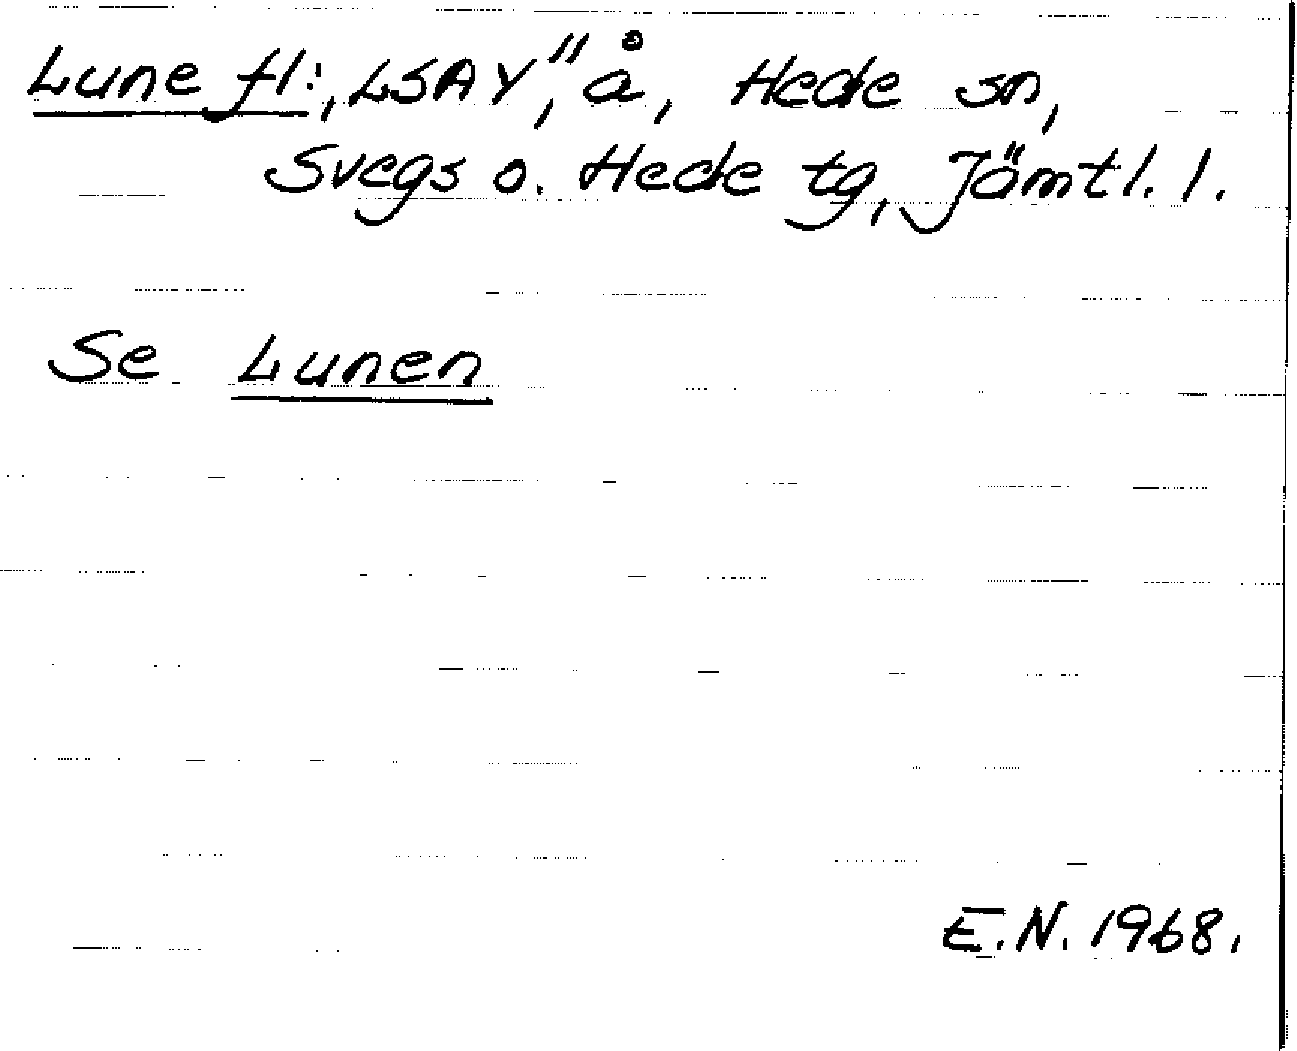 Lune fl:, LSAY", å, Hede sn,
Svegs o. Hede tg, Jämtl. l.
Se Lunen
E.N. 1968.